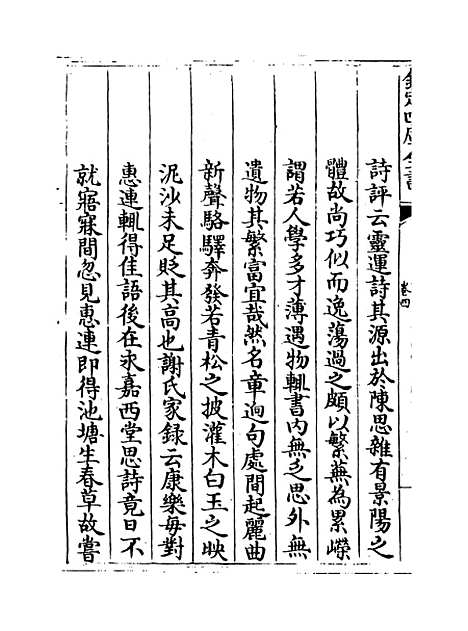 欽定四庫全書
卷四
詩評云靈運詩其源出於陳思雜有景陽之
體故尚巧似而逸蕩過之頗以繁蕪為累嶸
謂若人學多才薄遇物輒書内無乏思外無
遺物其繁富宜哉然名章逈句處間起麗曲
新聲駱驛奔發若青松之披灌木白玉之映
泥沙未足貶其高也謝氏家録云康樂每對
惠連輒得佳語後在永嘉西堂思詩竟日不
就寤寐間忽見惠連即得池塘生春草故嘗